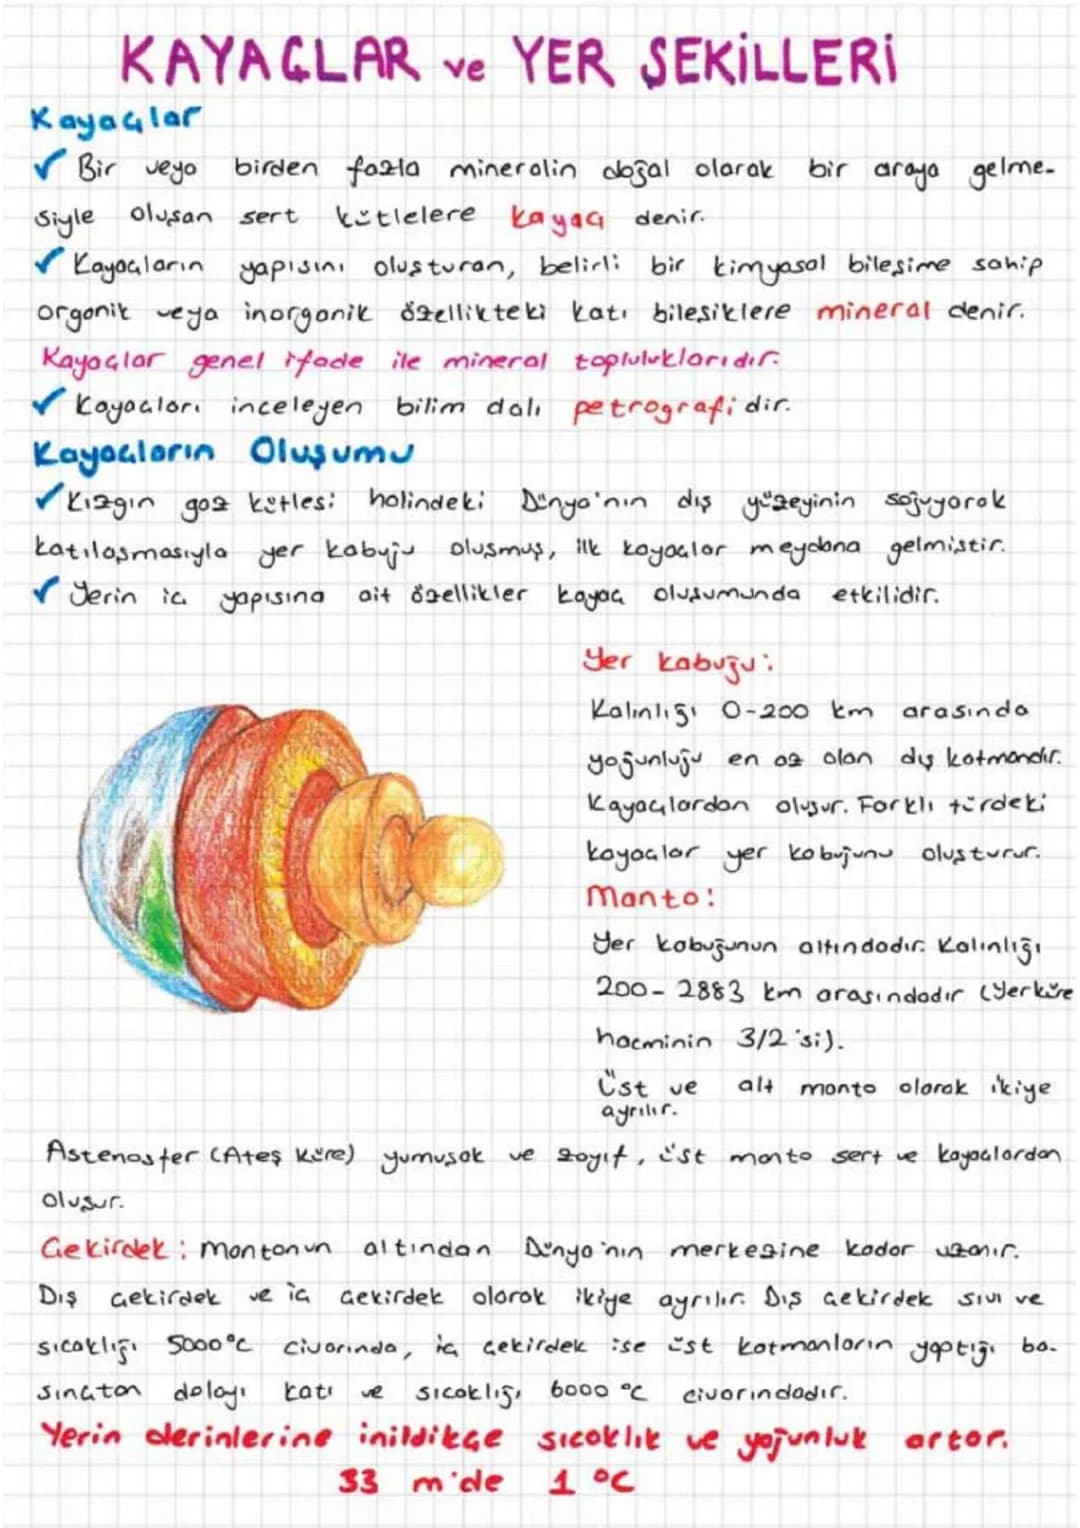 KAYAÇLAR ve YER ŞEKİLLERİ
Kayaçlar
✓ Bir veya birden fazla mineralin doğal olarak bir araya gelme-
siyle oluşan sert kütlelere kayaç denir.
✓ Kayaçların yapısını oluşturan, belirli bir kimyasal bileşime sahip
organik veya inorganik özellikteki katı bileşiklere mineral denir.
Kayaçlar genel ifade ile mineral topluluklarıdır.
✓ Kayaçları inceleyen bilim dalı petrografi dir.
Kayaçların Oluşumu
✓ Kızgın gaz kütlesi halindeki Dünya'nın dış yüzeyinin soğuyarak
katılaşmasıyla yer kabuğu oluşmuş, ilk kayaçlar meydana gelmiştir.
✓ Yerin iç yapısına ait özellikler kayaç oluşumunda etkilidir.
Yer kabuğu:
Kalınlığı 0-200 km arasında
yoğunluğu en az olan dış katmandır.
Kayaçlardan oluşur. Farklı türdeki
kayaçlar yer kabuğunu oluşturur.
Manto:
Yer kabuğunun altındadır. Kalınlığı
200-2883 km arasındadır (Yerküre
hacminin 3/2'si).
Üst ve alt manto olarak ikiye
ayrılır.
Astenosfer (Ateş Küre) yumuşak ve zayıf, üst manto sert ve kayaçlardan
oluşur.
Çekirdek: Mantonun altından Dünya'nın merkezine kadar uzanır.
Dış çekirdek ve iç çekirdek olarak ikiye ayrılır. Dış çekirdek sıvı ve
sıcaklığı 5000°C civarında, iç çekirdek ise üst katmanların yaptığı ba-
sınçtan dolayı katı ve sıcaklığı 6000 °C civarındadır.
Yerin derinlerine inildikçe sıcaklık ve yoğunluk artar.
33 m'de 1 °C